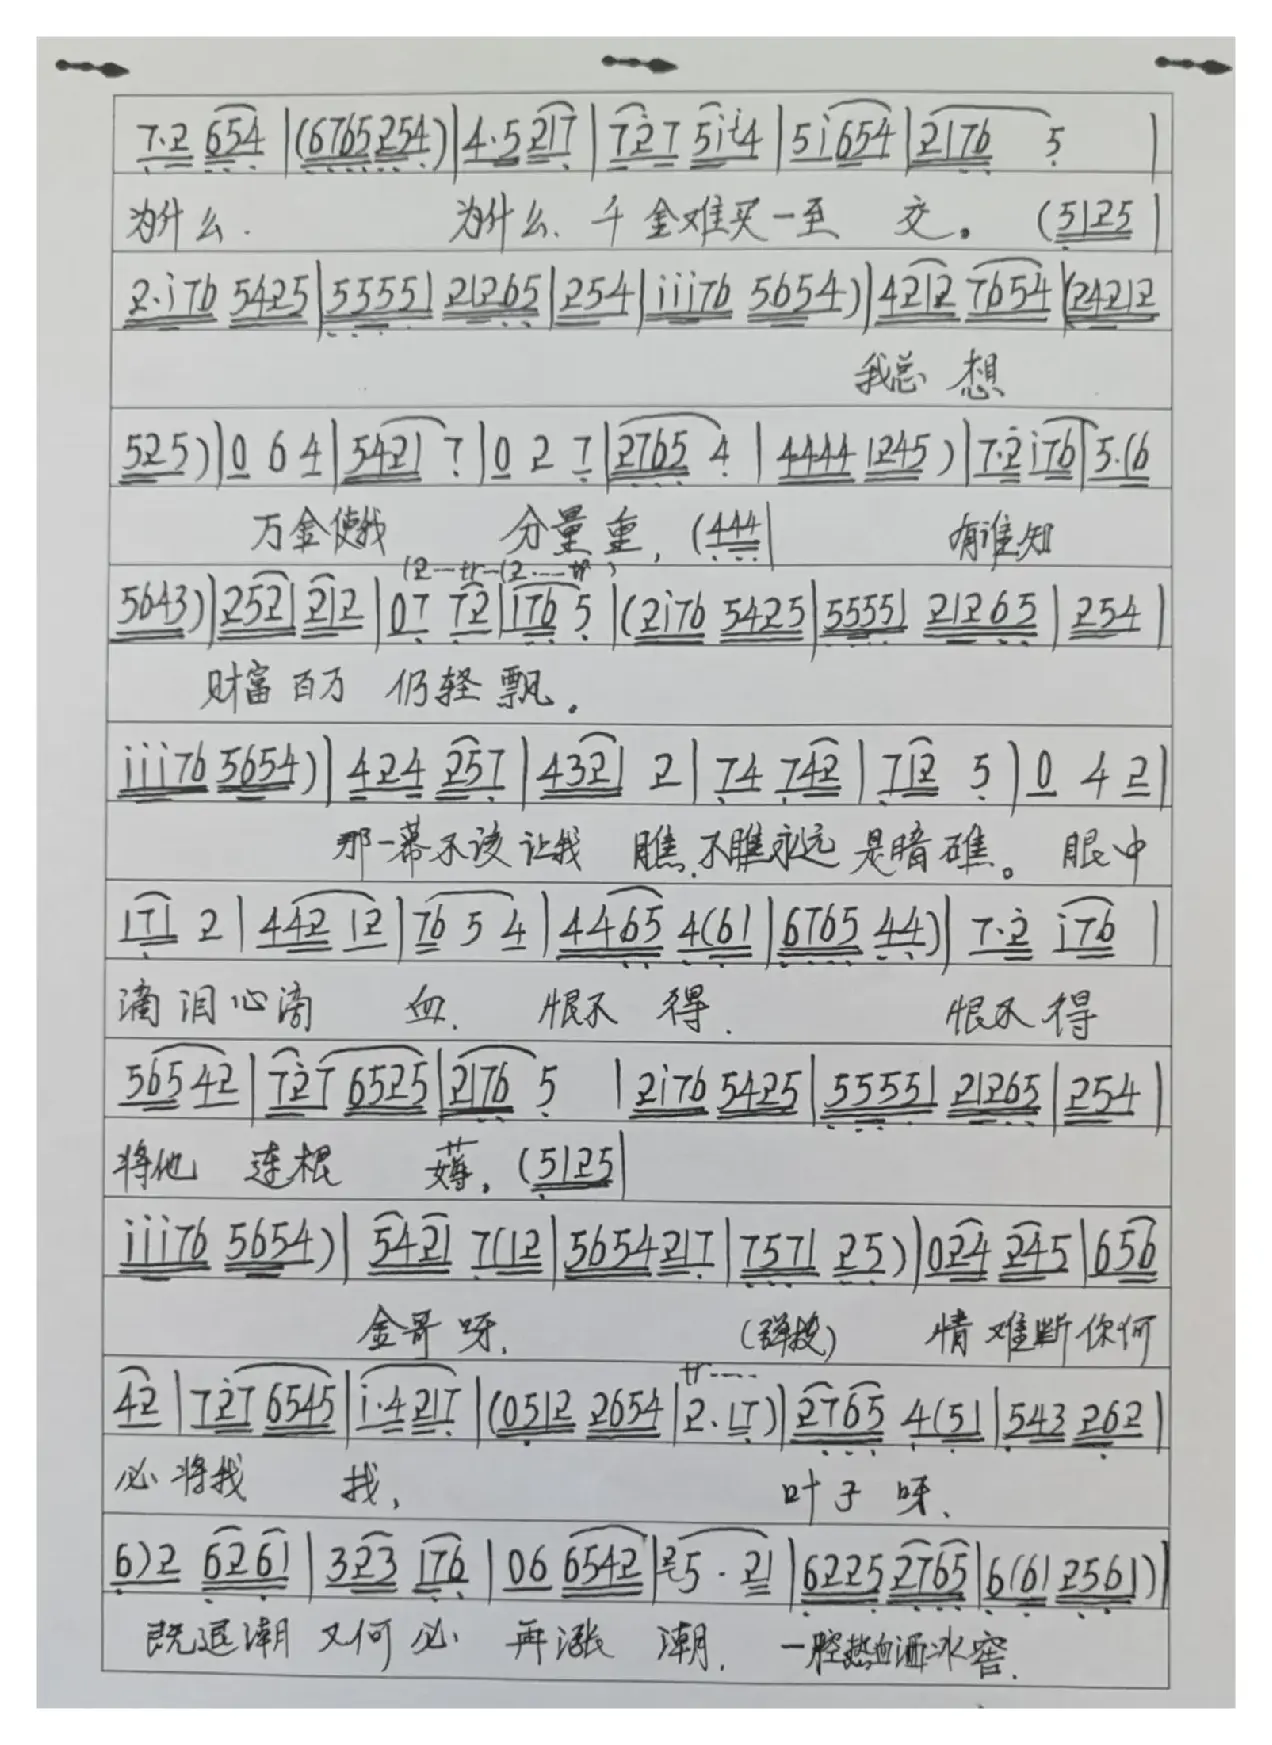 7·2 654 |(6765254)|4·5 217 | 727 5i i4 | 5i654 | 2176 5 |
为什么. 为什么. 千金难买一至交。(5125|
2·i76 5425|55551 21265|254|iii76 5654)|4212 7654|(24212
我总想
525)|0 6 4|5421 7|0 2 7|2765 4 | 4444 1245)|7·2 i76|5·(6
万金使我 分量重, (444| 有谁知
(2---サ--(2----サ )
5643)|2521 212|07 72|176 5|(2i76 5425|55551 21265|254|
财富百万 仍轻飘。
iii76 5654)|424 257|4321 2|74 742|712 5|0 4 2|
那一幕不该让我 瞧.不瞧永远是暗礁。眼中
171 2|442 12|76 5 4|4465 4(61|6765 44)|7·2 i76|
滴泪心滴 血. 恨不得. 恨不得
56542|727 6525|2176 5 |2i76 5425|55551 21265|254|
将他 连根 薅。(5125|
iii76 5654)|5421 7(12|5654217|7571 25)|024 245|656
金哥呀. (弹拨) 情难断你何
サ----
42|727 6545|i·4217|(0512 2654|2·17)|2765 4(51|543 262|
必将我 找, 叶子呀.
6)2 6261|323 176|06 6542|25·21|6225 2765|6(61 2561)|
既退潮又何必 再涨 潮. 一腔热血洒冰窖.